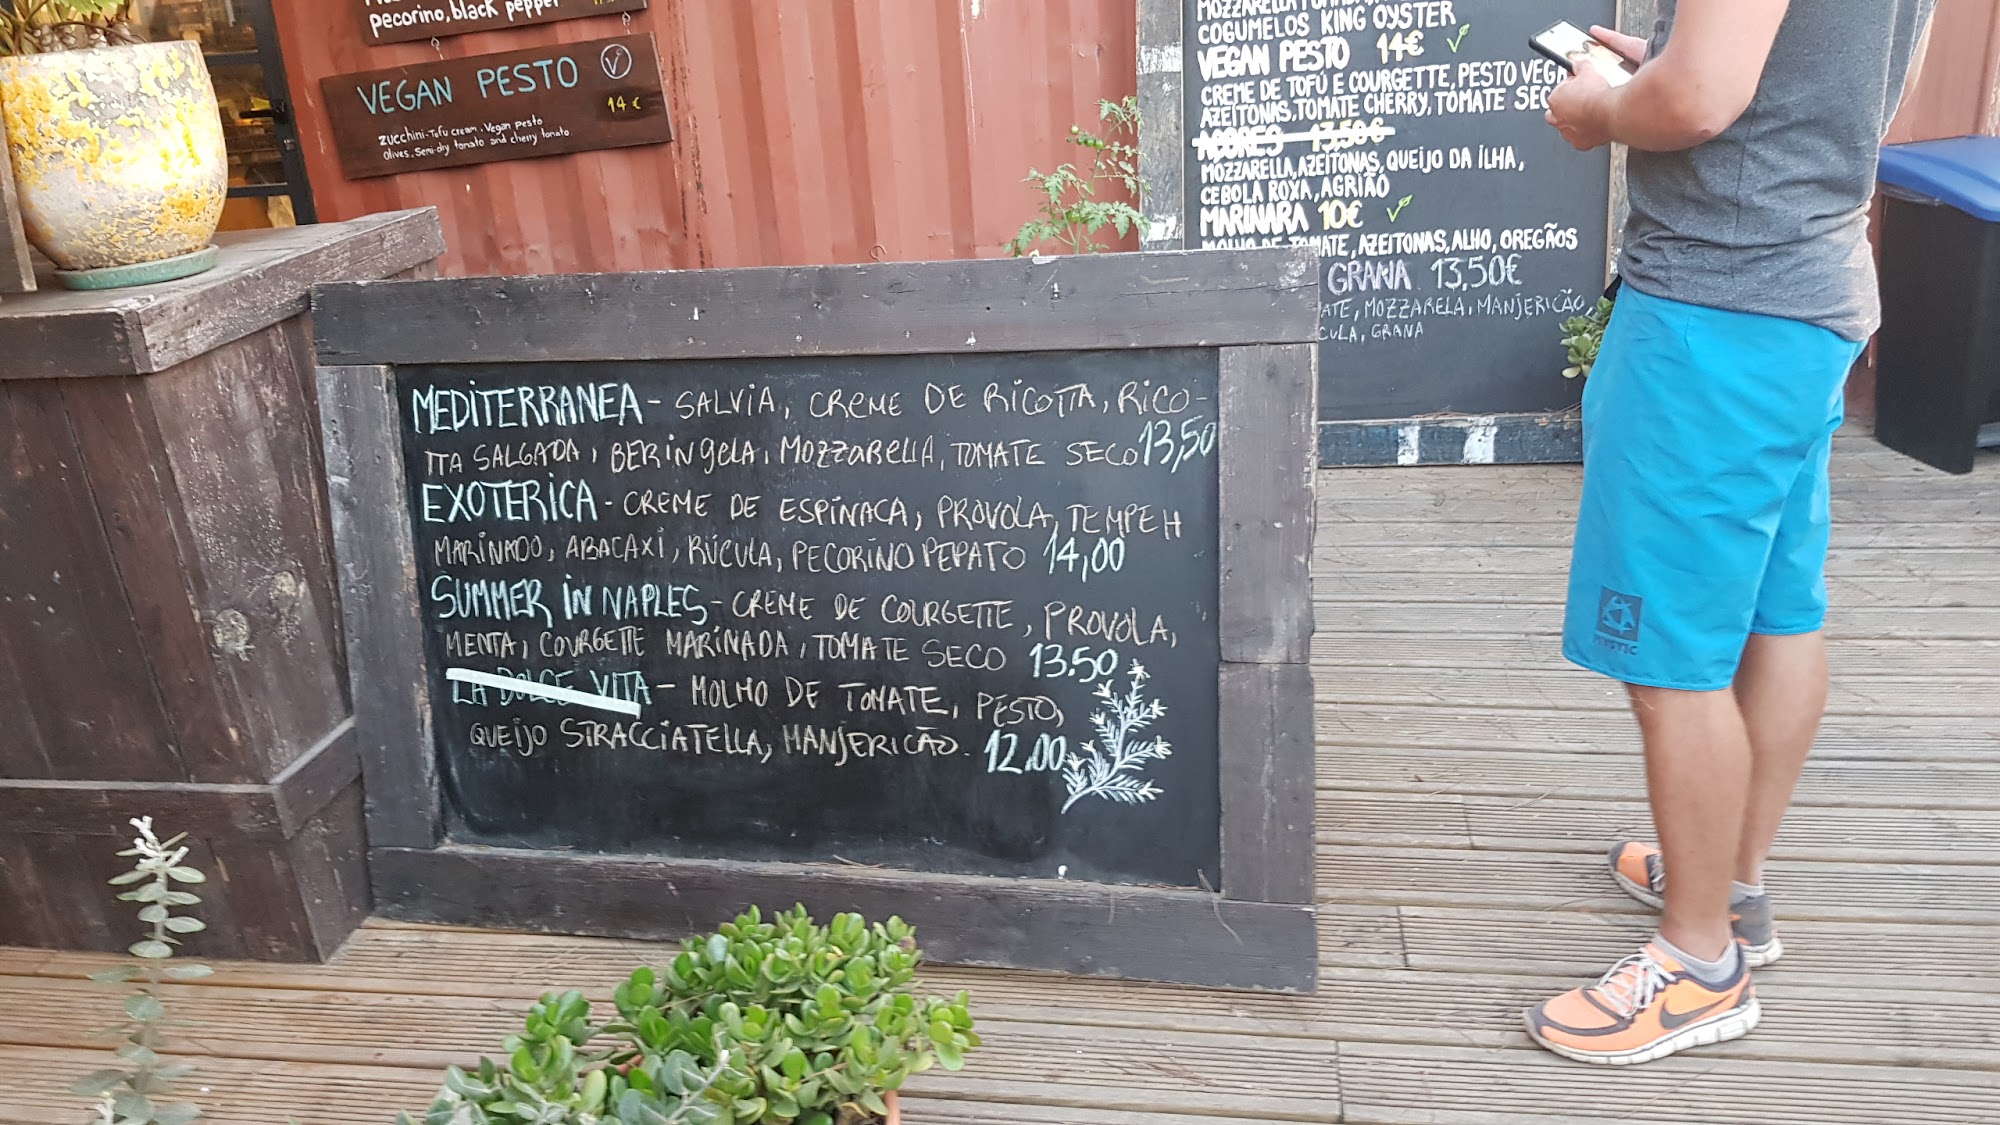 pecorino, black pepper
VEGAN PESTO V
14 €
zucchini-Tofu cream. Vegan pesto
Olives, Semi-dry tomato and cherry tomato.
COGUMELOS KING OYSTER
VEGAN PESTO 14€
CREME DE TOFÚ E COURGETTE, PESTO VEGA
AZEITONAS, TOMATE CHERRY, TOMATE SEC
AÇORES 13,50€
MOZZARELLA, AZEITONAS, QUEIJO DA ILHA,
CEBOLA ROXA, AGRIÃO
MARINARA 10€
MOLHO DE TOMATE, AZEITONAS, ALHO, OREGÃOS
GRANA 13,50€
ATE, MOZZARELA, MANJERICÃO,
CULA, GRANA
MEDITERRANEA - SALVIA, CREME DE RICOTTA, RICO-
TTA SALGADA, BERINGELA, MOZZARELLA, TOMATE SECO 13,50
EXOTERICA - CREME DE ESPINACA, PROVOLA, TEMPEH
MARINADO, ABACAXI, RÚCULA, PECORINO PEPATO 14,00
SUMMER IN NAPLES - CREME DE COURGETTE, PROVOLA,
MENTA, COURGETTE MARINADA, TOMATE SECO 13.50
LA DOLCE VITA - MOLHO DE TOMATE, PESTO,
QUEIJO STRACCIATELLA, MANJERICÃO. 12.00
MYSTIC